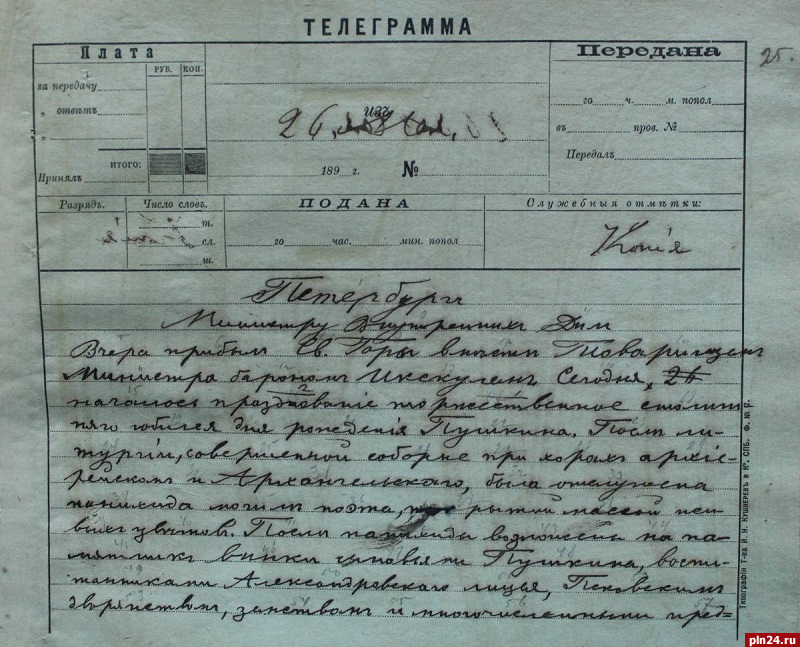 ТЕЛЕГРАММА
25.
Плата
РУБ. КОП.
за передачу
„ отвѣтъ
„
ИТОГО:
Принялъ
изъ
26,
189 г. №
Передана
го ч. м. попол
въ пров. №
Передалъ
Разрядъ.
Число словъ.
т.
сл.
ш.
ПОДАНА
го час. мин. попол
Служебныя отмѣтки:
Копія
Петербургъ
Министру Внутреннихъ Дѣлъ
Вчера прибылъ Св. Горы вмѣстѣ Товарищемъ
Министра барономъ Икскулемъ Сегодня, 26
началось празднованіе торжественное столѣт
няго юбилея дня рожденія Пушкина. Послѣ ли-
тургіи, совершенной соборне при хорахъ архіе-
рейскомъ и Архангельскаго, была отслужена
панихида могилѣ поэта, покрытой массой жи-
выхъ цвѣтовъ. Послѣ панихиды возложены на па-
мятникъ вѣнки сыновьями Пушкина, воспи-
танниками Александровскаго лицея, Псковскимъ
дворянствомъ, земствомъ и многочисленными пред-
Типографія Т-ва И. Н. КУШНЕРЕВЪ и Кº. СПБ. Ф. № 9.
pln24.ru